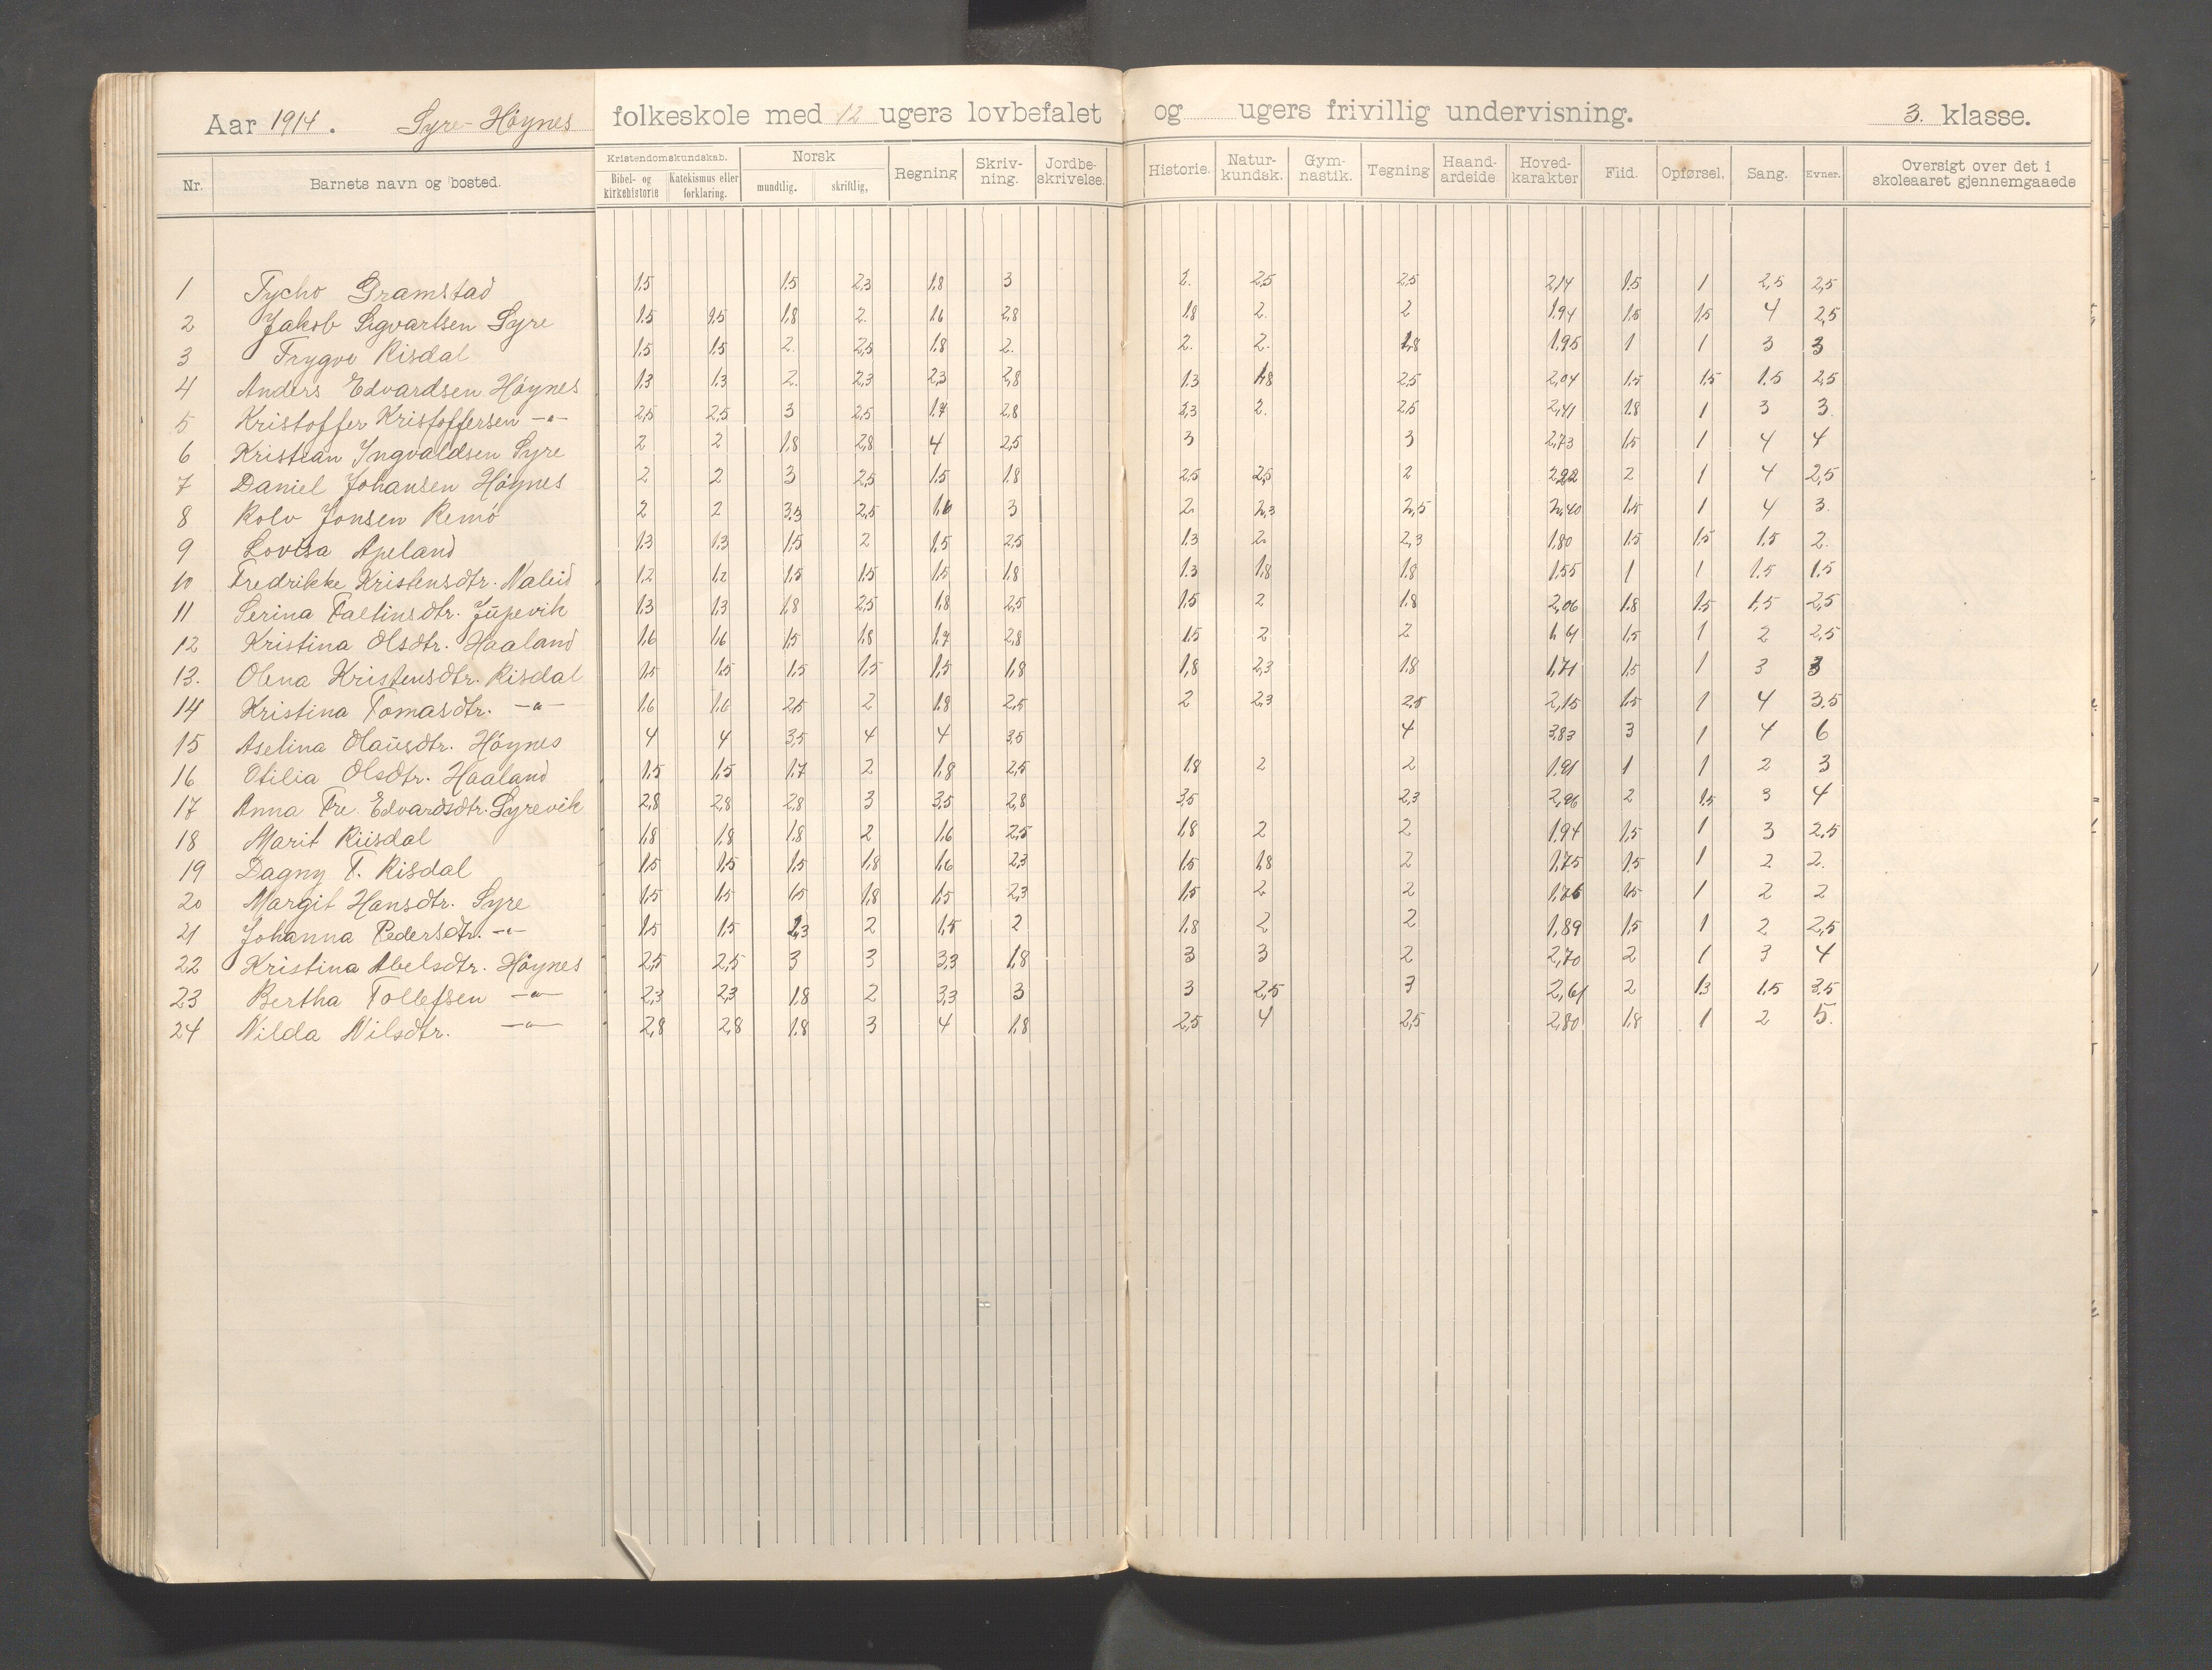 Aar 1914. Syre-Höynes folkeskole med 12 ugers lovbefalet og ugers frivillig undervisning. 3. klasse.
Nr. Barnets navn og bosted. Kristendomskundskab. Bibel- og kirkehistorie Katekismus eller forklaring. Norsk mundtlig. skriftlig, Regning Skriv-ning. Jordbe-skrivelse. Historie. Natur-kundsk. Gym-nastik. Tegning Haand-ardeide Hoved-karakter Flid. Opførsel, Sang. Evner. Oversigt over det i skoleaaret gjennemgaaede
1 Tycho Gramstad 1.5 1.5 2,3 1,8 3 2. 2,5 2,5 2,14 1.5 1 2,5 2,5
2 Jakob Sigvartsen Syre 1.5 1.5 1,8 2. 1,6 2,8 1,8 2. 2 1.94 1.5 1,5 4 2,5
3 Trygve Risdal 1.5 1.5 2. 2,5 1.8 2. 2. 2. 1,8 1.95 1 1 3 3
4 Anders Edvardsen Höynes 1.3 1.3 2. 2,3 2,3 2,8 1.3 1,8 2,5 2,04 1.5 1.5 1.5 2,5
5 Kristoffer Kristoffersen -"- 2,5 2,5 3 2,5 1.7 2,8 3,3 2. 2,5 2,41 1.8 1 3 3
6 Kristian Yngvaldsen Syre 2 2 1,8 2,8 4 2,5 3 3 2,73 1.5 1 4 4
7 Daniel Johansen Höynes 2 2 3 2,5 1.5 1.8 2,5 2,5 2 2,22 2 1 4 2,5
8 Rolv Jonsen Remö 2 2 3,3 2,5 1,6 3 2 2,3 2,5 2,40 1.5 1 4 3.
9 Lovisa Apeland 1.3 1.3 1.5 2 1.5 2,5 1.3 2 2,3 1,80 1.5 1.5 1.5 2.
10 Fredrikke Kristensdtr. Naleid 1.2 1.2 1.5 1.5 1.5 1.8 1.3 1,8 1.8 1.55 1 1 1.5 1.5
11 Serina Faltinsdtr. Jupevik 1.3 1.3 1,8 2,5 1.8 2,5 1.5 2 1.8 2,06 1.8 1.5 1,5 2,5
12 Kristina Olsdtr. Haaland 1.6 1.6 1.5 1.8 1.7 2,8 1.5 2 2 1.5 1 2 2,5
13. Olena Kristensdtr. Risdal 1.5 1.5 1.5 1.5 1,5 1,8 1,8 2,3 1.8 1,71 1,5 1 3 3
14 Kristina Tomasdtr. -"- 1.6 1.6 2,5 2 1.8 2,5 2 2,3 2,5 2,15 1.5 1 4 3.5
15 Aselina Olausdtr. Höynes 4 4 3,5 4 4 3,5 4 3,83 3 1 4 6
16 Otilia Olsdtr. Haaland 1.5 1.5 1.7 2 1.8 2,5 1.8 2 2 1.91 1 1 2 3
17 Anna Fre. Edvardsdtr. Syrevik 2,8 2,8 2,8 3 3,5 2,8 3,5 2,3 2,96 2 1.5 3 4
18 Marit Riisdal 1,8 1,8 1.8 2 1,6 2,5 1,8 2 2 1.94 1,5 1 3 2,5
19 Dagny T. Risdal 1.5 1.5 1.5 1.8 1,6 2,3 1.5 1,8 2 1,75 1.5 1 2 2.
20 Margit Hansdtr. Syre 1.5 1.5 1.5 1.8 1.5 2,3 1.5 2 2 1,76 1.5 1 2 2
21 Johanna Pedersdtr. -"- 1.5 1.5 2,3 2 1,5 2 1,8 2 2 1,89 1.5 1 2 2,5
22 Kristina Abelsdtr. Höynes 2,5 2,5 3 3 3,3 1,8 3 3 2 2,70 2 1 3 4
23 Bertha Tollefsen -"- 2,3 2,3 1.8 2 3,3 3 3 2,5 3 2,61 2 1.3 1.5 3.5
24 Nilda Nilsdtr. -"- 2,8 2,8 1.8 3 4 1,8 2,5 4 2,5 2,80 1.8 1 2 5.